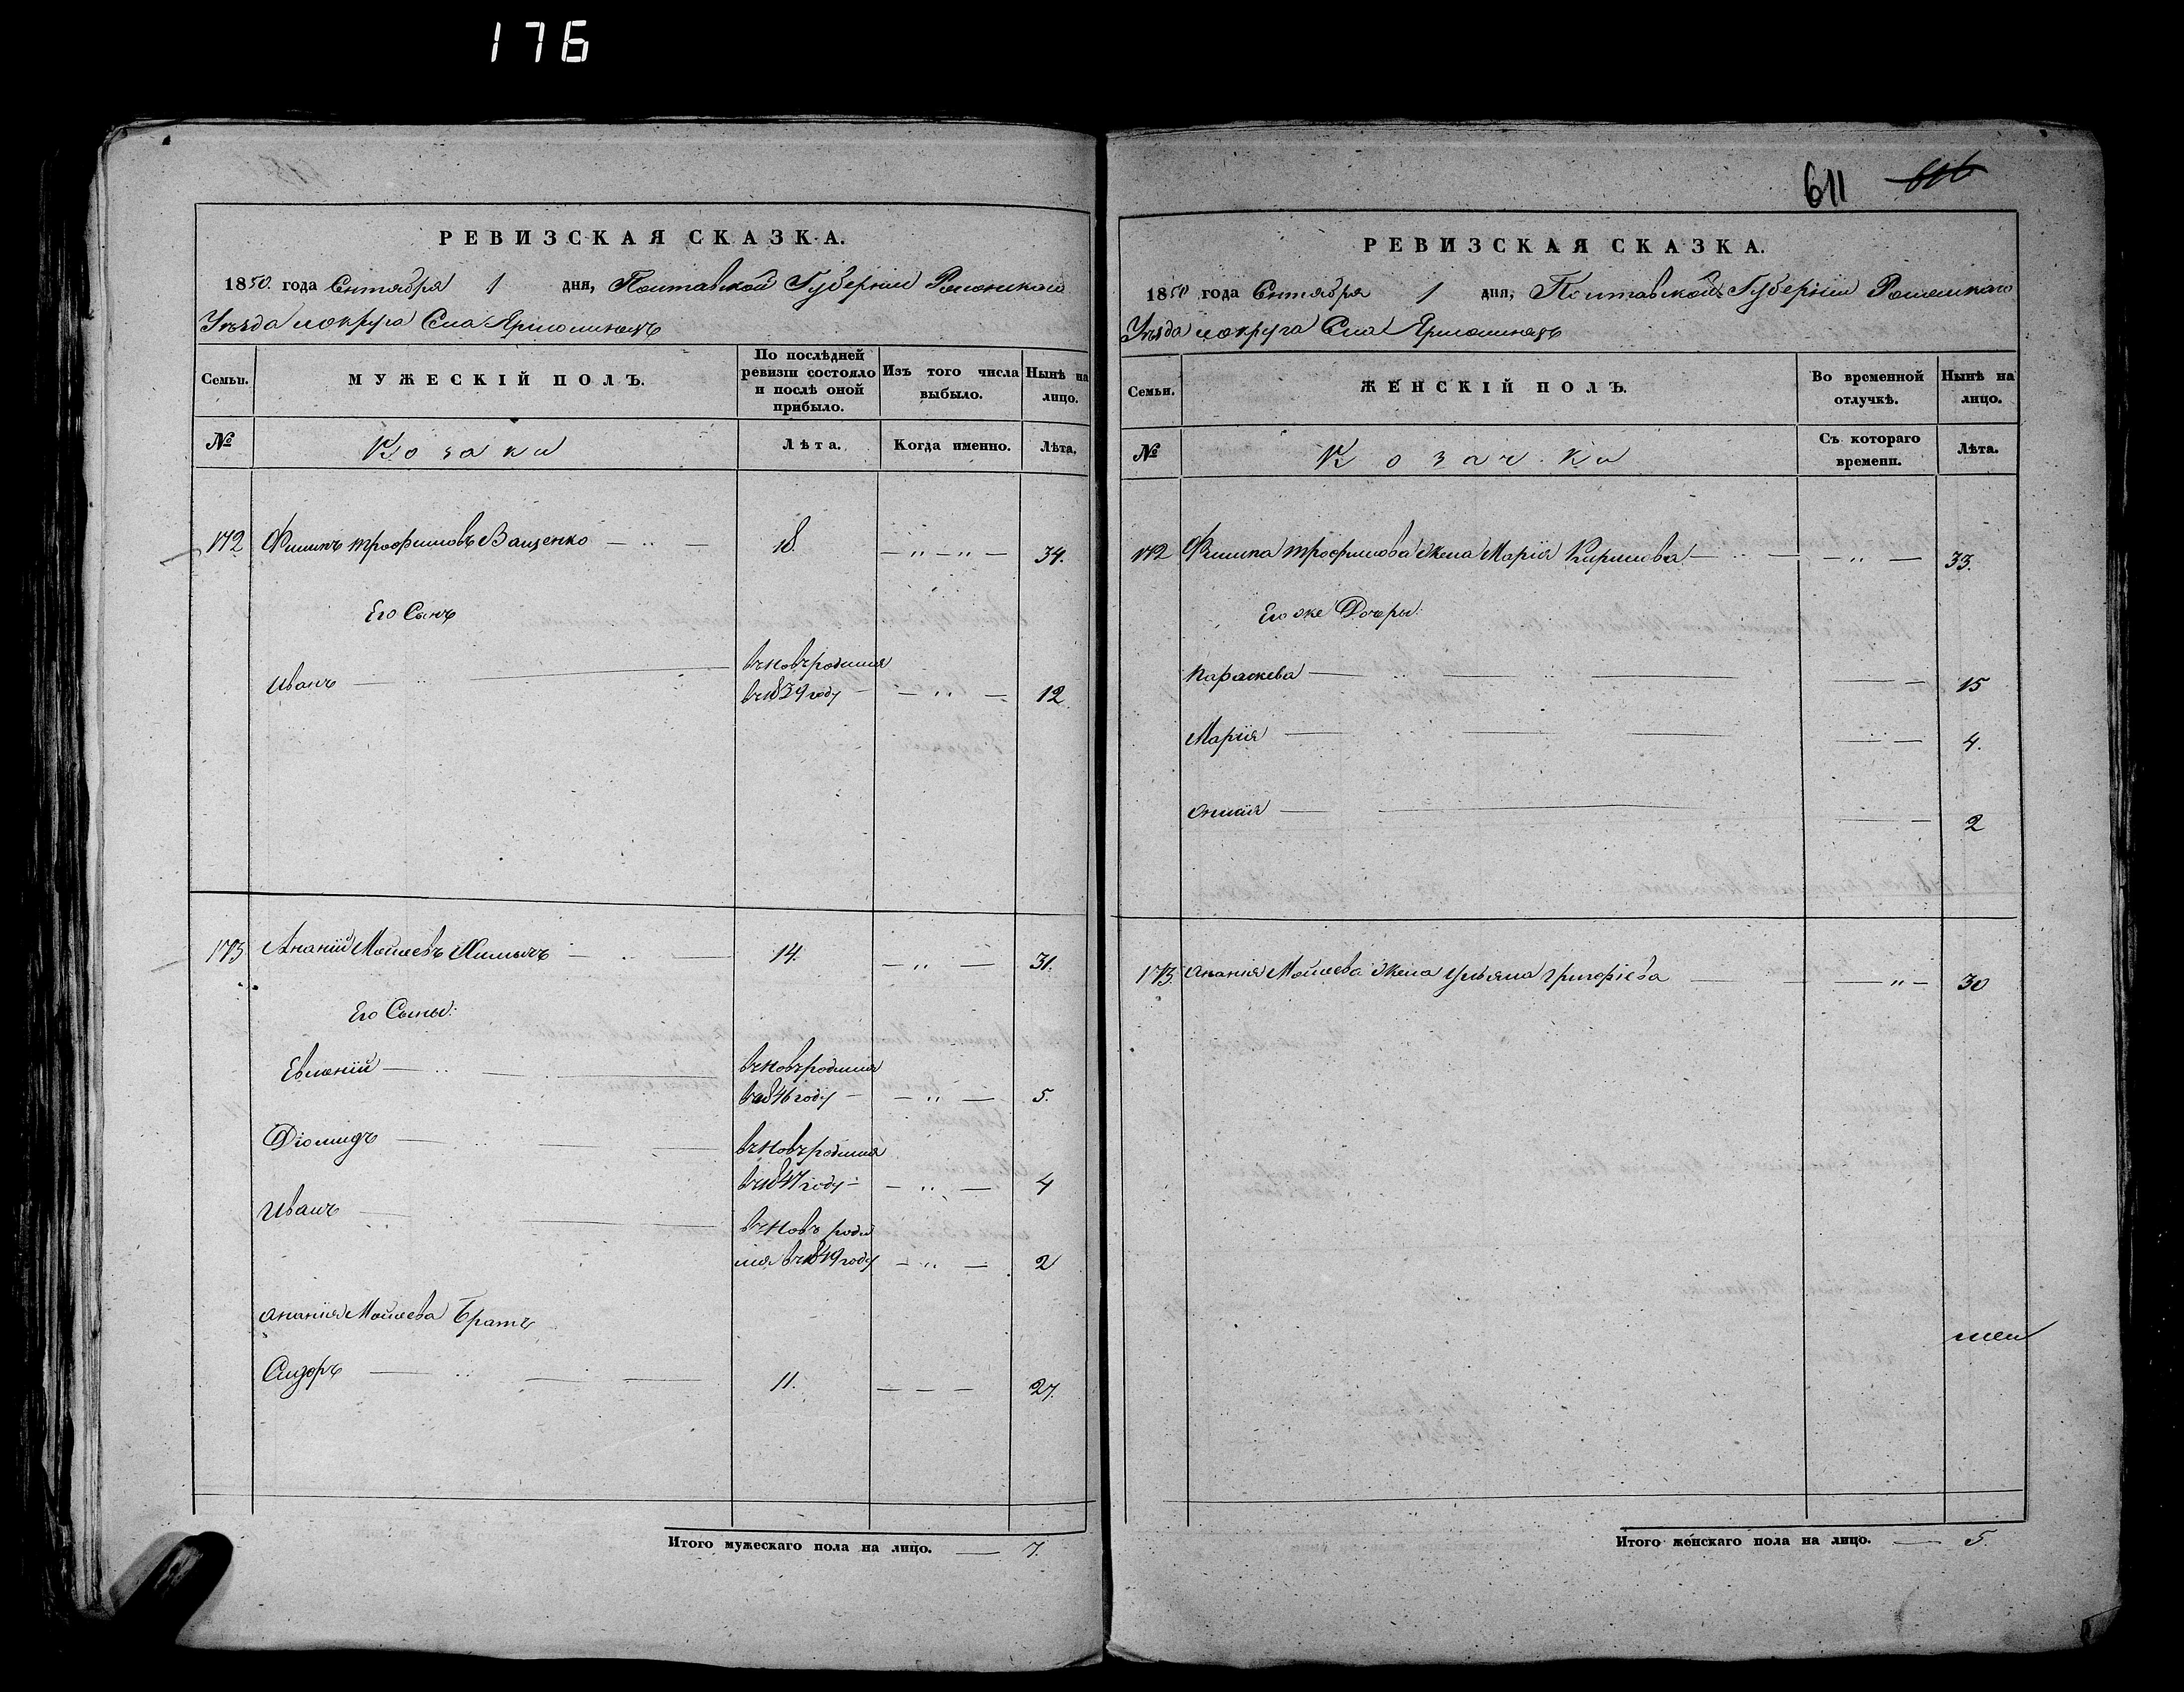 176
РЕВИЗСКАЯ СКАЗКА.
1850. года Сентября 1 дня, Полтавской Губернии Роменскаго
Уезда и округа Села Ярмолинецъ
Семьи.
МУЖЕСКІЙ ПОЛЪ.
По послѣдней ревизіи состояло и послѣ оной прибыло.
Изъ того числа выбыло.
Нынѣ на лицо.
№
Козаки
Лѣта.
Когда именно.
Лѣта.
172 Филипъ Трофимовъ Ващенко 18. 34.
Его Сынъ
Иванъ
вновъродился
въ 1839 году 12
173 Ананій Мойсеевъ 14. 31.
Его Сыны:
Евменій
вновъродился
въ 1846 году 5.
Діомидъ
вновъродился
въ 1847 году 4
Иванъ
вновъ роди
лся въ 1849 году 2
Ананія Мойсеева Братъ
Сидоръ 11. 27.
Итого мужескаго пола на лицо. 7.
611 616
РЕВИЗСКАЯ СКАЗКА.
1850 года Сентября 1 дня, Полтавской Губернии Роменскаго
Уезда и округа Села Ярмолинецъ
Семьи.
ЖЕНСКІЙ ПОЛЪ.
Во временной отлучкѣ.
Нынѣ на лицо.
№
Козачки
Съ котораго времени.
Лѣта.
172 Филипа Трофимова жена Марія Кирилова 33.
Его же Дочеры:
Параскева 15
Марія 4.
2
173. Ананія Мойсеева жена Ульяна Григоріева 30
Итого женскаго пола на лицо. 5.